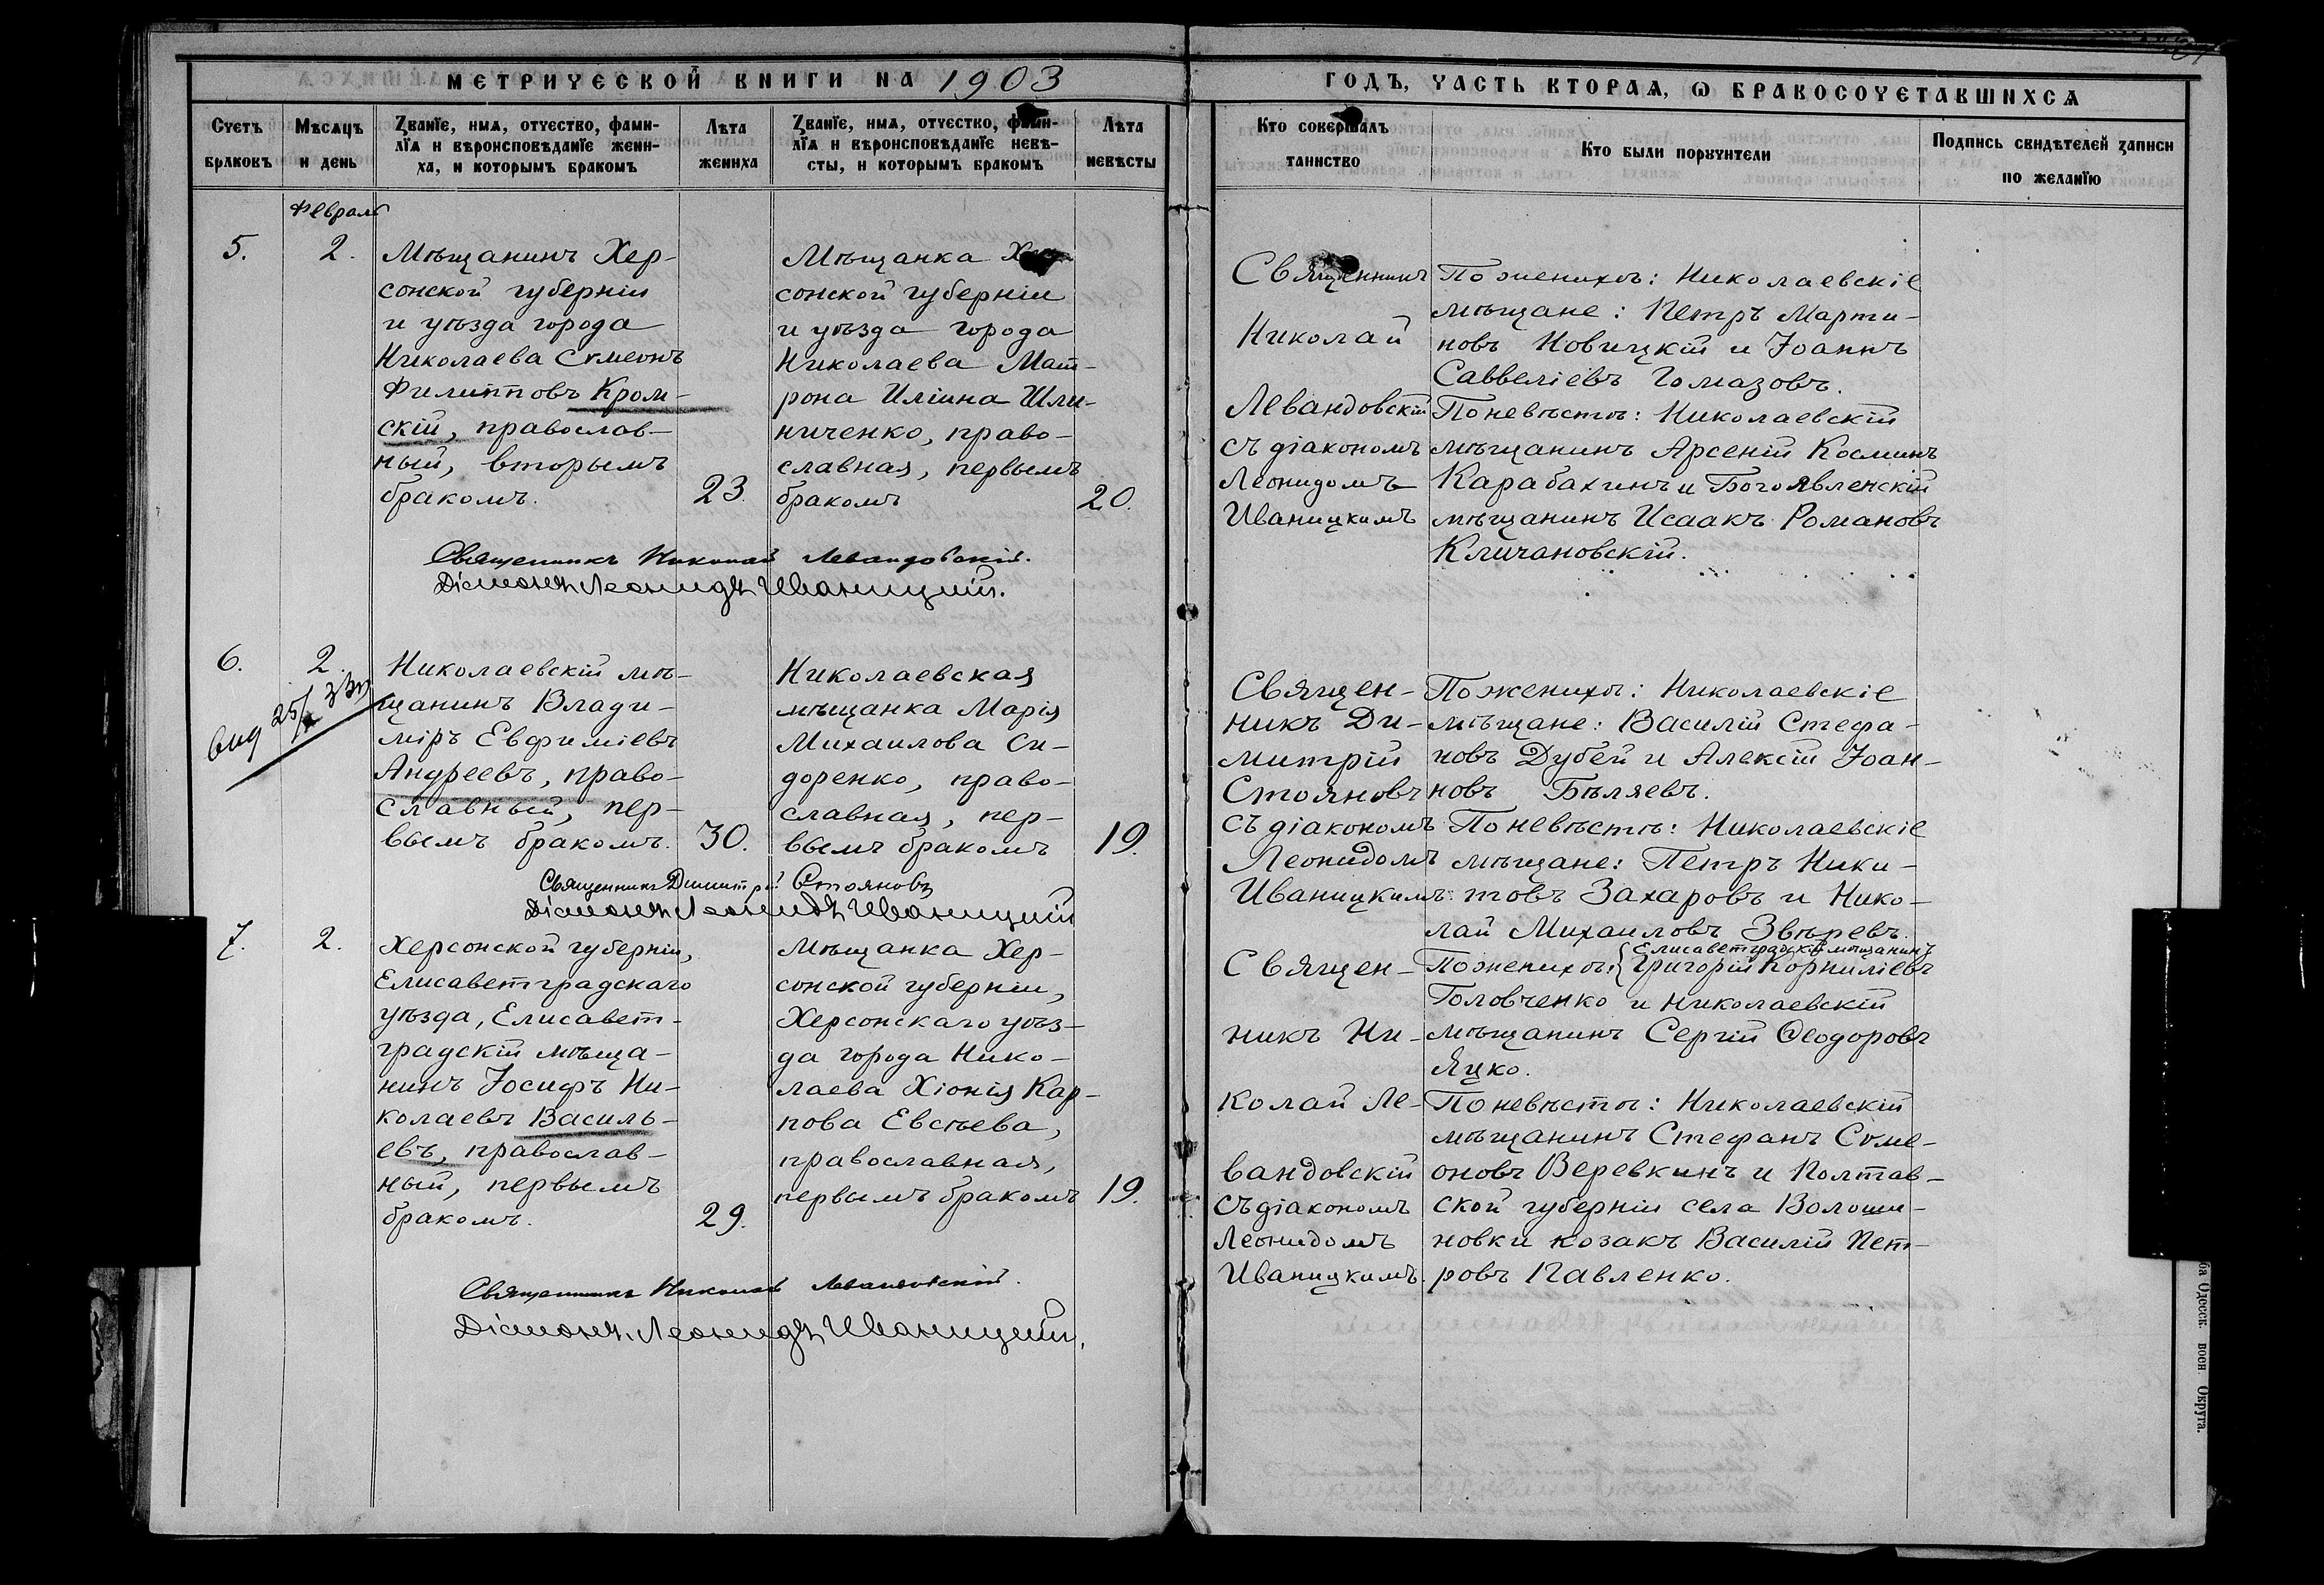 МЕТРИЧЕСКОЙ КНИГИ НА 1903
ГОДЪ, ЧАСТЬ ВТОРАѦ, Ѡ БРАКОСОЧЕТАВШИХСѦ
Счетъ браковъ
Мѣсѧцъ и день
Званїе, имѧ, отчество, фами-
лїѧ и вѣроисповѣданїе жени-
ха, и которымъ бракомъ
Лѣта жениха
Званїе, имѧ, отчество, фами-
лїѧ и вѣроисповѣданїе невѣ-
сты, и которымъ бракомъ
Лѣта невѣсты
Кто совершалъ
таинство
Кто были поручители
Подпись свидѣтелей записи
по желанїю
Февраль
5.
2.
Мѣщанинъ Хер-
сонской губерніи
и уѣзда города
Николаева Сѵмеонъ
Филипповъ Кром-
скій, православ-
ный, вторымъ
бракомъ.
23.
Мѣщанка
сонской губерніи
и уѣзда города
Николаева Мат-
рона Иліина Шли-
ниченко, право-
славная, первымъ
бракомъ
20.
Священникъ
Николай
Левандовскій
съ діакономъ
Леонидомъ
Иваницкимъ
По женихѣ: Николаевскіе
мѣщане: Петръ Марти-
новъ Новицкій и Іоаннъ
Савваліевъ Гомазовъ.
По невѣстѣ: Николаевскій
мѣщанинъ Арсеній Косминъ
Карабахинъ и Богоявленскій
мѣщанинъ Исаакъ Романовъ
Кличановскій.
Священникъ Николай Левандовскій.
Діаконъ Леонидъ Иваницкій.
6.
2.
Николаевскій мѣ-
щанинъ Влади-
міръ Евфиміевъ
Андреевъ, право-
славный, пер-
вымъ бракомъ.
30.
Николаевская
мѣщанка Марія
Михаилова Си-
доренко, право-
славная, пер-
вымъ бракомъ
19.
Священ-
никъ Ди-
митрій
Стояновъ
съ діакономъ
Леонидомъ
Иваницкимъ.
По женихѣ: Николаевскіе
мѣщане: Василій Стефа-
новъ Дубей и Алексій Іоан-
новъ Бѣляевъ.
По невѣстѣ: Николаевскіе
мѣщане: Петръ Ники-
товъ Захаровъ и Нико-
лай Михаиловъ Звѣревъ.
Священникъ Димитрій Стояновъ
Діаконъ Леонидъ Иваницкій
7.
2.
Херсонской губерніи,
Елисаветградскаго
уѣзда, Елисавет-
градскій мѣща-
нинъ Іосифъ Ни-
колаевъ Василь-
евъ, православ-
ный, первымъ
бракомъ.
29.
Мѣщанка Хер-
сонской губерніи,
Херсонскаго уѣз-
да города Нико-
лаева Хіонія Кар-
пова Евсѣева,
православная,
первымъ бракомъ
19.
Священ-
никъ Ни-
колай Ле-
вандовскій
съ діакономъ
Леонидомъ
Иваницкимъ.
Елисаветградскій мѣщанинъ
По женихѣ: Григорій Корниліевъ
Головченко и Николаевскій
мѣщанинъ Сергій Ѳеодоровъ
Яцко.
По невѣстѣ: Николаевскій
мѣщанинъ Стефанъ Сѵме-
оновъ Веревкинъ и Полтав-
ской губерніи села Волоши-
новки козакъ Василій Пет-
ровъ Павленко.
Священникъ Николай Левандовскій.
Діаконъ Леонидъ Иваницкій.
Одесск. воен. Округа.